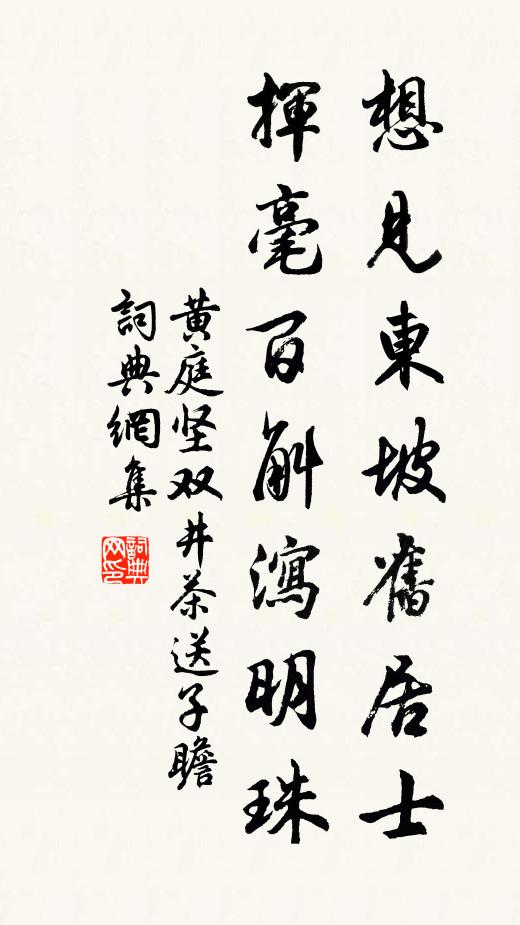 想見東坡舊居士
揮毫百斛瀉明珠
黄庭坚双井茶送子瞻
詞典網集
詞典網印